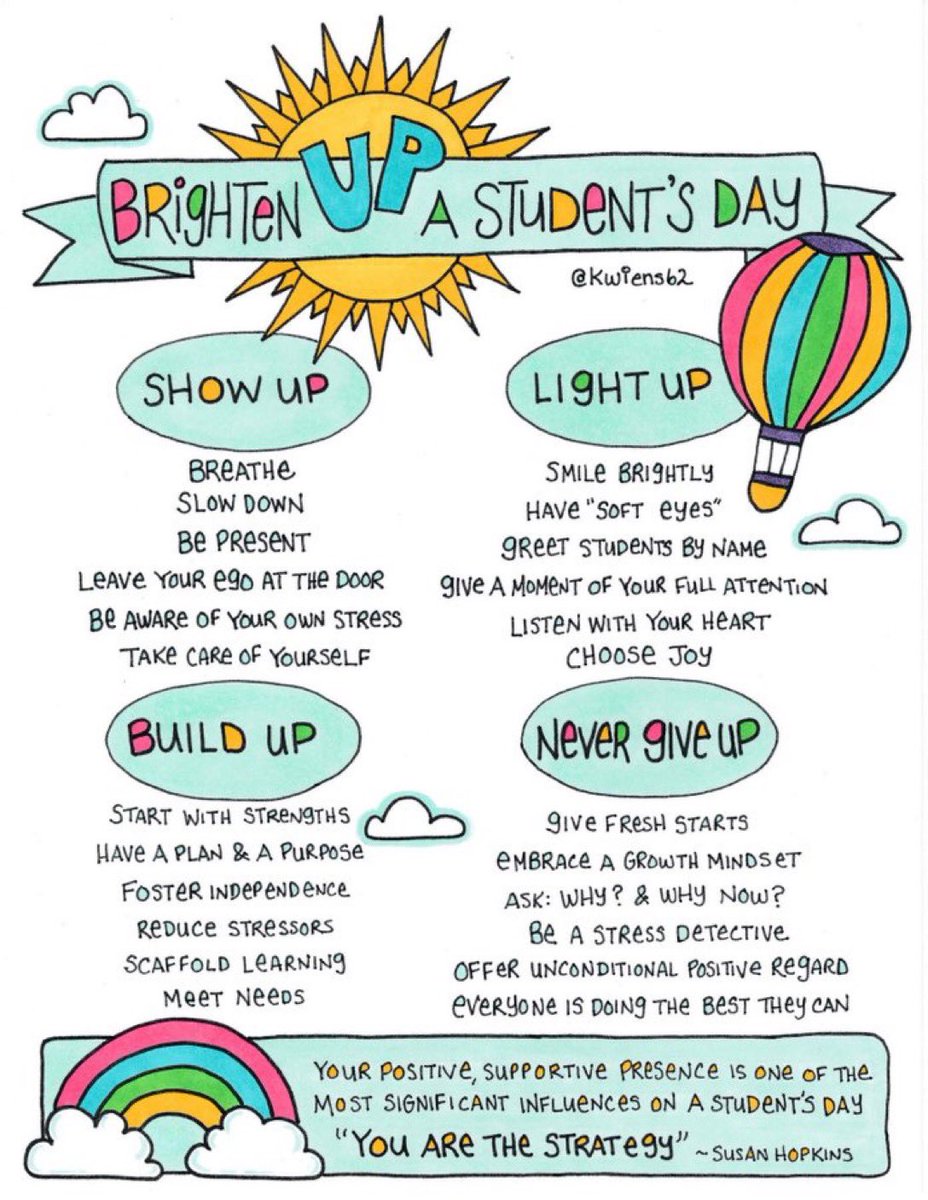 BRIGHTEN UP A STUDENT'S DAY
@Kwiens62
SHOW UP
BREATHE
SLOW DOWN
BE PRESENT
LEAVE YOUR EGO AT THE DOOR
BE AWARE OF YOUR OWN STRESS
TAKE CARE OF YOURSELF
LIGHT UP
SMILE BRIGHTLY
HAVE "SOFT EYES"
GREET STUDENTS BY NAME
GIVE A MOMENT OF YOUR FULL ATTENTION
LISTEN WITH YOUR HEART
CHOOSE JOY
BUILD UP
START WITH STRENGTHS
HAVE A PLAN & A PURPOSE
FOSTER INDEPENDENCE
REDUCE STRESSORS
SCAFFOLD LEARNING
MEET NEEDS
NEVER GIVE UP
GIVE FRESH STARTS
EMBRACE A GROWTH MINDSET
ASK: WHY? & WHY NOW?
BE A STRESS DETECTIVE
OFFER UNCONDITIONAL POSITIVE REGARD
EVERYONE IS DOING THE BEST THEY CAN
YOUR POSITIVE, SUPPORTIVE PRESENCE IS ONE OF THE
MOST SIGNIFICANT INFLUENCES ON A STUDENT'S DAY
"YOU ARE THE STRATEGY" ~ SUSAN HOPKINS